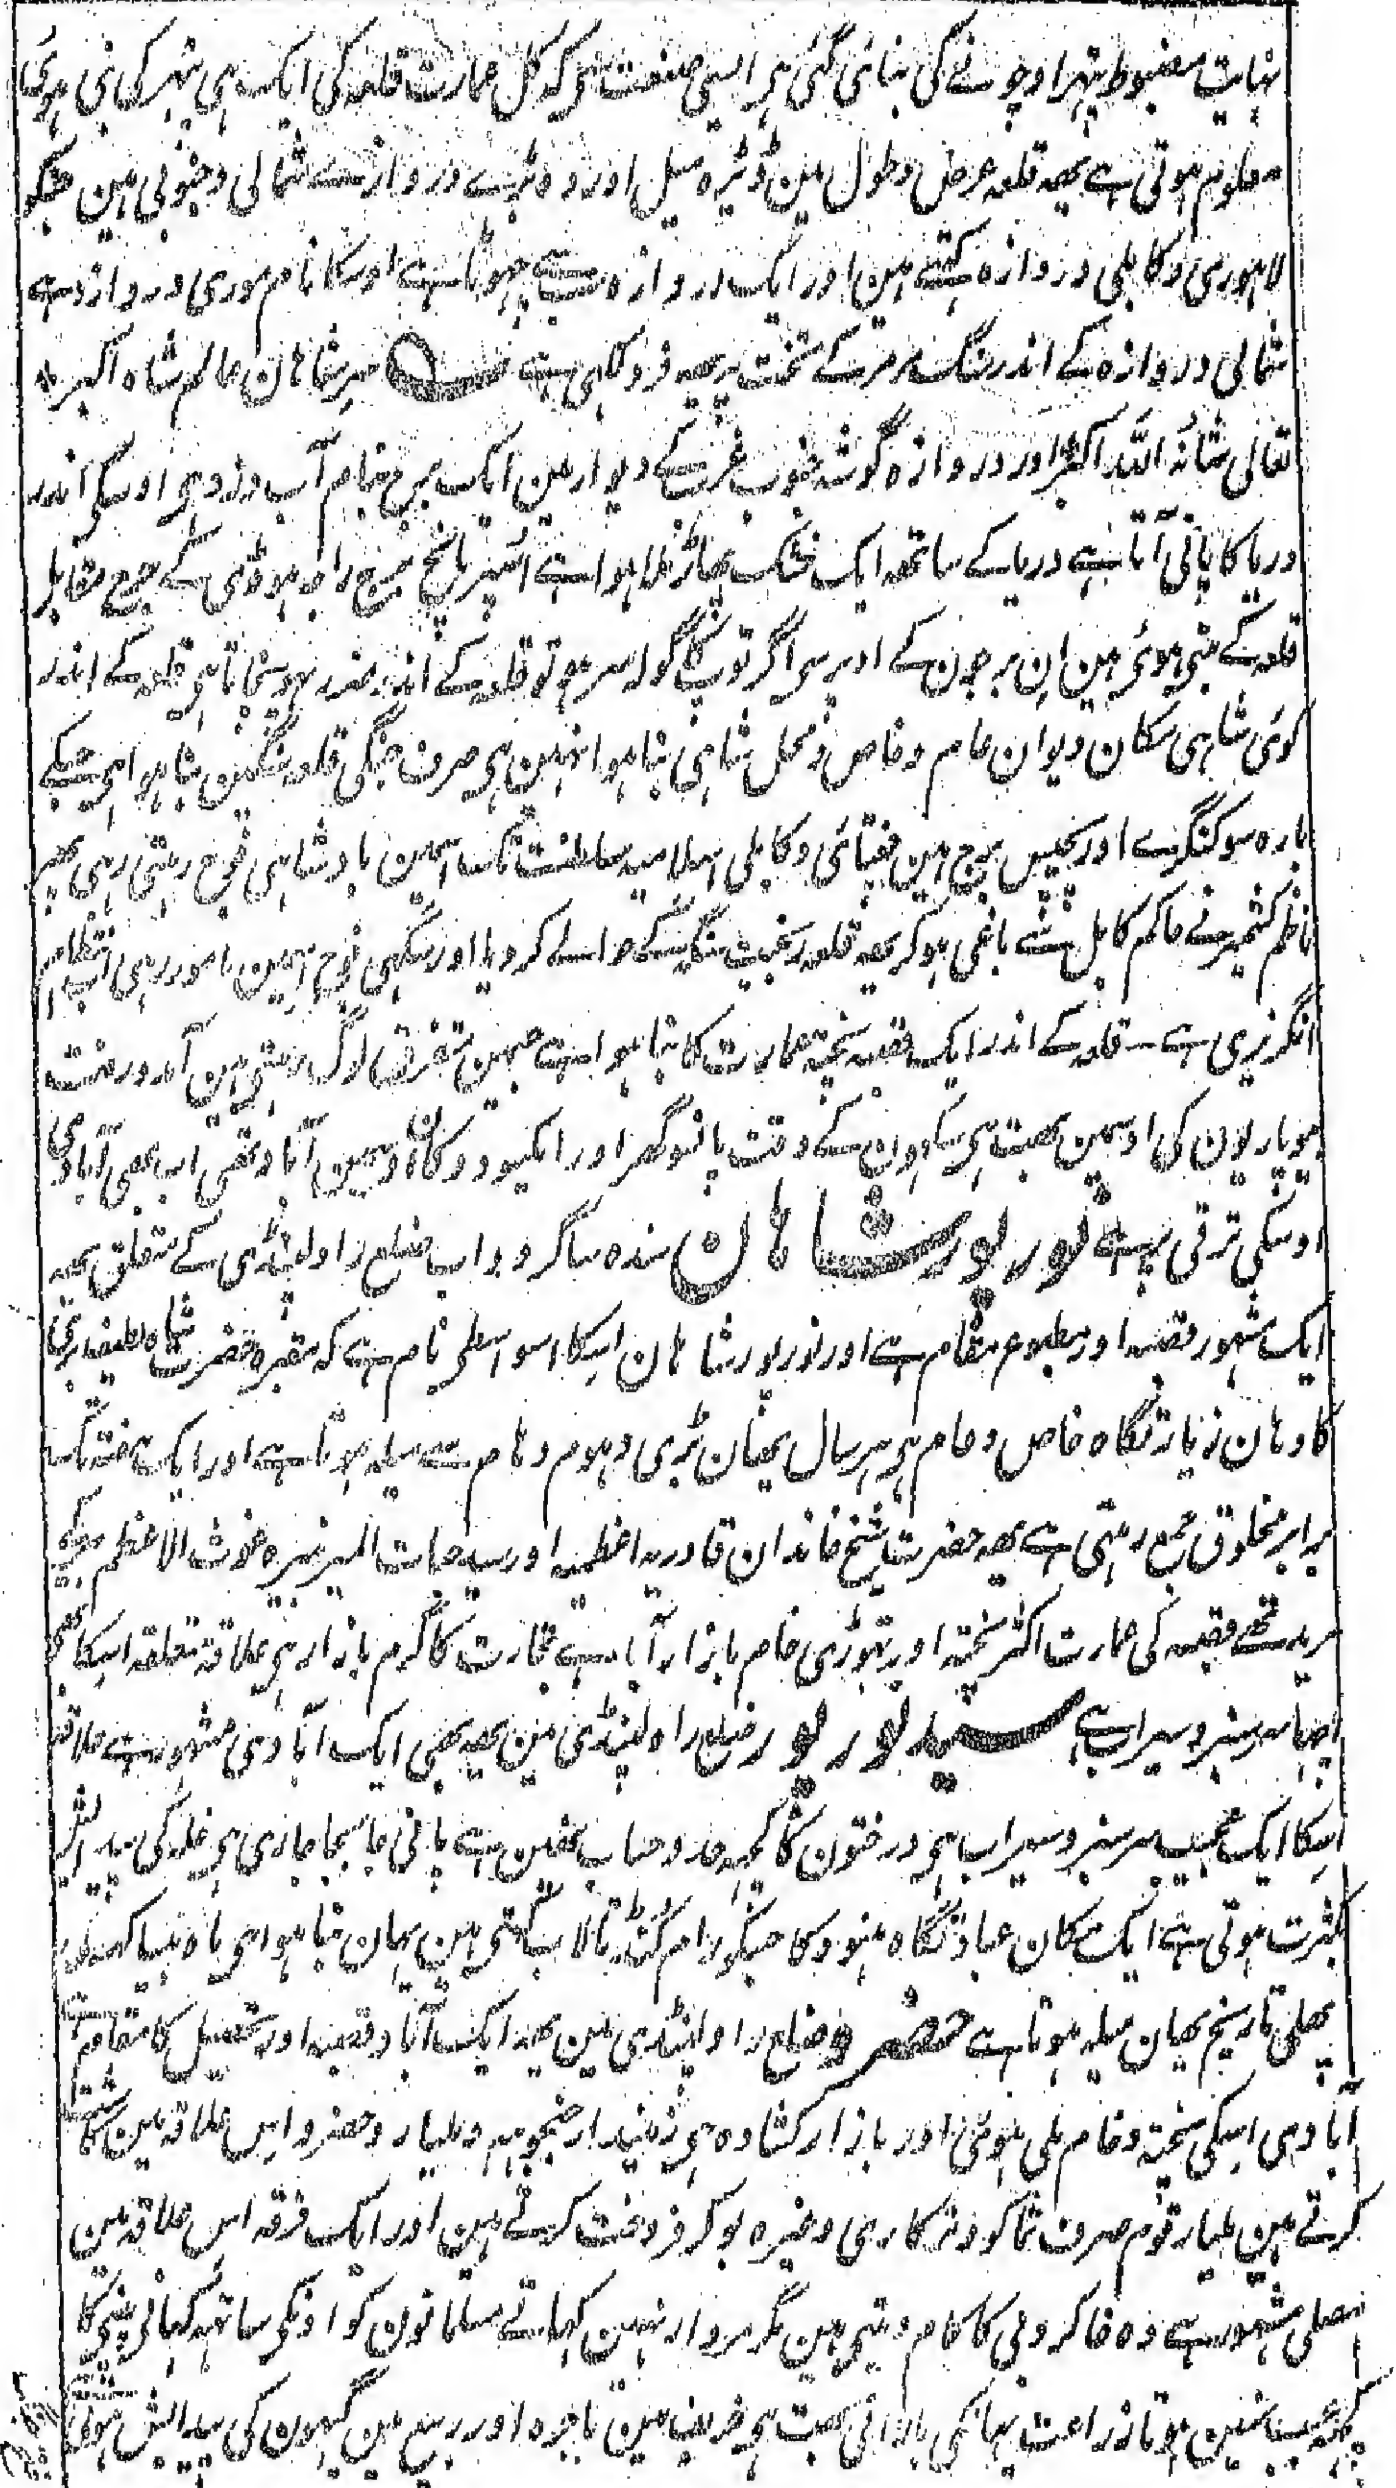 نہایت مضبوط پتہر اور چونے کی بنائی گئی ہر ایسی صنعت سی کہ کل عمارت قلعہ کی ایک ہی پتہر کی بنی ہوئی
معلوم ہوتی ہے یہہ قلعہ عرض و طول مین ڈیڑہ میل اور دو بڑے دروازے شمالی و جنوبی ہین جنکو
لاہوری و کابلی دروازہ کہتے ہین اور ایک دروازہ سب سے چہوٹا ہے اوسکا نام موری دروازہ ہے
شمالی دروازہ کے اندر سنگ مرمر کے تخت پر یہہ فرد لکہی ہے سر شاہان عالم شاہ اکبر
تعالی شانہ اللہ اکبر اور دروازہ گوشہ جنوب غرب کے دیوار مین ایک برج بنام آب دزد ہی اوسکی اندر
دریا کا پانی آتا ہے دریا کے ساتھہ ایک خشک پہاڑ ملا ہوا ہے اسپر پانچ برج راجہ ہوڈی کے برج مقابل
قلعہ کے بنی ہوئی ہین ان برجون کے اوپر سی اگر توپ کا گولہ سر ہو تو قلعہ کے اندر ضرر پہونچاتا ہی قلعہ کے اندر
کوئی شاہی مکان دیوان عام و خاص و محل شاہی بنا ہوا نہین ہی صرف جنگی قلعہ سنگین بنا ہوا ہی جسکے
بارہ سو کنگرے اور پچیس برج ہین چغتائی و کابلی اسلامیہ سلطنت تک اسمین بادشاہی فوج رہتی رہی پہر
ناظم کشمیر نے حاکم کابل سے باغی ہو کر یہہ قلعہ رنجیت سنگہ کے حوالے کر دیا اور سکہی فوج اسمین مامور رہی اب انتظام
انگریزی ہے ۔ قلعہ کے اندر ایک قصبہ پختہ عمارت کا بنا ہوا ہے جسمین متفرق لوگ رہتی ہین آمد و رفت
بیوپاریون کی اوسمین بہت ہی سکہون کے وقت پانسو گہر اور ایکسو دوکان اوسمین آباد تہی اب بہی آبادی
اوسکی ترقی پر ہے نور پور شاہان سندہ ساگر دواب ضلع راولپنڈی کے متعلق یہہ
ایک مشہور قصبہ اور مطبوع مقام ہے اور نور پور شاہان اسکا اسواسطی نام ہے کہ مقبرہ حضرت شاہ لطیف بری
کا وہان زیارتگاہ خاص و عام ہی ہر سال یہان بڑی دہوم دہام سے میلہ ہوتا ہے اور ایک ہفتہ تک
برابر مخلوق جمع رہتی ہے یہہ حضرت شیخ خاندان قادریہ اعظمیہ اور سید حیات المیر نبیرہ غوث الاعظم کے
مرید تھے قصبہ کی عمارت اکثر پختہ اور تہوڑی خام بازار آباد ہے تجارت کا گرم بازار ہی علاقہ متعلقہ اسکا بہی
اچہا سرسبز و سیراب ہے سید نور پور ضلع راولپنڈی مین یہہ بہی ایک آبادی مشہور ہے علاقہ
اسکا ایک عجیب سرسبز و سیراب ہی درختون کا کچہہ حد و حساب نہین ہے پانی جا بجا جاری ہی غلہ کی پیدایش
بکثرت ہوتی ہے ایک مکان عبادتگاہ ہنود کا جسکو رام کنڈ تالاب کہتی ہین یہان بنا ہوا ہی ماہ بیساکہہ کی
پہلی تاریخ یہان میلہ ہوتا ہے حضرو ضلع راولپنڈی مین یہہ ایک آباد قصبہ اور تحصیل کا مقام ہے
آبادی اسکی پختہ و خام ملی ہوئی اور بازار کشادہ ہی زمیندار جنجوہہ و ملیار و حضرو اس علاقہ مین کاشت
کرتے ہین ملیار قوم صرف تماکو و ترکاری وغیرہ بو کر فروخت کرتے ہین اور ایک فرقہ اس علاقہ مین
مصلی مشہور ہے وہ خاکروبی کا کام دیتی ہین مگر مردار نہین کہاتے مسلمانون کو اونکی ساتھہ کہانی پینی کا
کچہہ عیب نہین ہوتا زراعت یہانکی بارانی بہت ہی خریف مین باجرہ اور ربیع مین گیہون کی پیدایش ہوتی